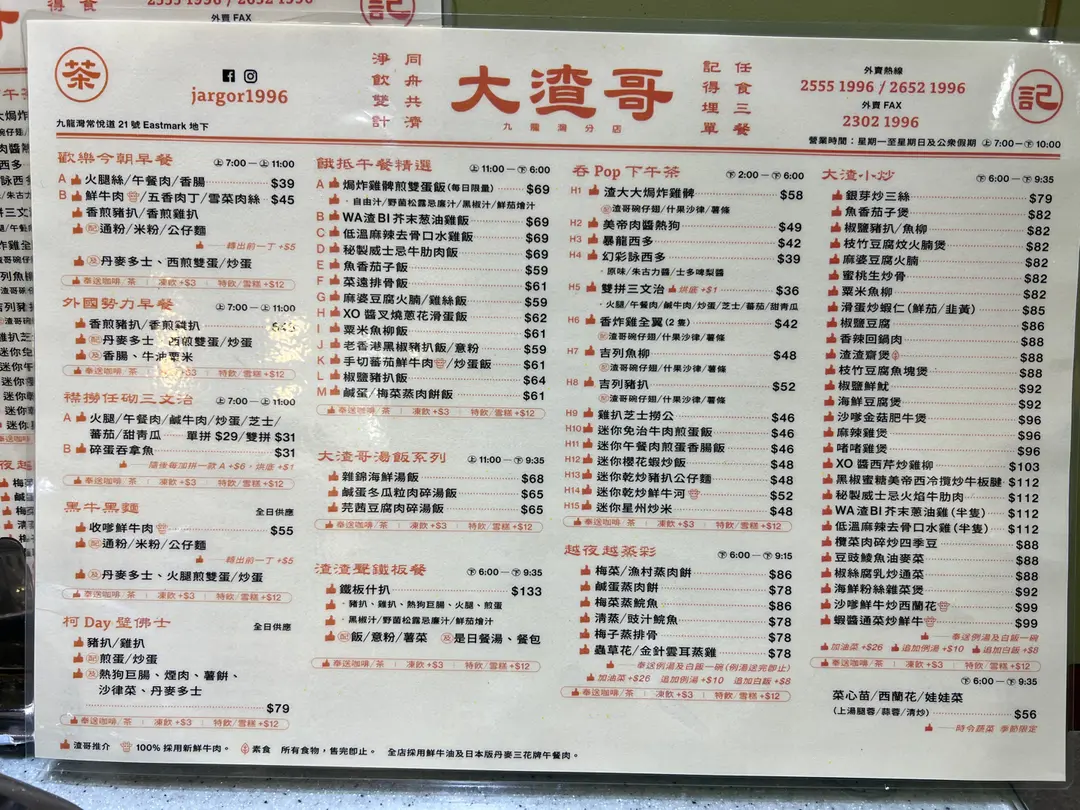 外賣 FAX
2555 1996 / 2652 1996
茶
jargor1996
九龍灣常悅道 21 號 Eastmark 地下
淨飲雙計
同舟共濟
大渣哥
九龍灣分店
記得埋單
任食三餐
外賣熱線
2555 1996 / 2652 1996
外賣 FAX
2302 1996
記
營業時間：星期一至星期日及公眾假期 上 7:00 — 下 10:00
歡樂今朝早餐 上 7:00 — 上 11:00
A 火腿絲/午餐肉/香腸 $39
B 鮮牛肉/五香肉丁/雪菜肉絲 $45
香煎豬扒/香煎雞扒
配 通粉/米粉/公仔麵
轉出前一丁 +$5
及 丹麥多士、西煎雙蛋/炒蛋
奉送咖啡/茶 | 凍飲 +$3 | 特飲/雪糕 +$12
外國勢力早餐 上 7:00 — 上 11:00
香煎豬扒/香煎雞扒
配 丹麥多士、西煎雙蛋/炒蛋
及 香腸、牛油粟米
奉送咖啡/茶 | 凍飲 +$3 | 特飲/雪糕 +$12
襟撈任砌三文治 上 7:00 — 上 11:00
A 火腿/午餐肉/鹹牛肉/炒蛋/芝士/
蕃茄/甜青瓜 單拼 $29/雙拼 $31
B 碎蛋吞拿魚 $31
隨後每加拼一款 A +$6、烘底 +$1
奉送咖啡/茶 | 凍飲 +$3 | 特飲/雪糕 +$12
黑牛黑麵 全日供應
收嗲鮮牛肉 $55
配 通粉/米粉/公仔麵
轉出前一丁 +$5
及 丹麥多士、火腿煎雙蛋/炒蛋
奉送咖啡/茶 | 凍飲 +$3 | 特飲/雪糕 +$12
柯 Day 壁佛士 全日供應
豬扒/雞扒
配 煎蛋/炒蛋
及 熱狗巨腸、煙肉、薯餅、
沙律菜、丹麥多士
$79
奉送咖啡/茶 | 凍飲 +$3 | 特飲/雪糕 +$12
餓抵午餐精選 上 11:00 — 下 6:00
A 焗炸雞髀煎雙蛋飯(每日限量) $69
· 自由汁/野菌松露忌廉汁/黑椒汁/鮮茄燴汁
B WA渣BI芥末葱油雞飯 $69
C 低溫麻辣去骨口水雞飯 $69
D 秘製威士忌牛肋肉飯 $69
E 魚香茄子飯 $59
F 菜遠排骨飯 $61
G 麻婆豆腐火腩/雞絲飯 $59
H XO 醬叉燒蔥花滑蛋飯 $62
I 粟米魚柳飯 $61
J 老香港黑椒豬扒飯/意粉 $59
K 手切蕃茄鮮牛肉/炒蛋飯 $61
L 椒鹽豬扒飯 $64
M 鹹蛋/梅菜蒸肉餅飯 $61
奉送咖啡/茶 | 凍飲 +$3 | 特飲/雪糕 +$12
大渣哥湯飯系列 上 11:00 — 下 9:35
雜錦海鮮湯飯 $68
鹹蛋冬瓜粒肉碎湯飯 $65
芫茜豆腐肉碎湯飯 $65
奉送咖啡/茶 | 凍飲 +$3 | 特飲/雪糕 +$12
渣渣聲鐵板餐 下 6:00 — 下 9:35
鐵板什扒 $133
· 豬扒、雞扒、熱狗巨腸、火腿、煎蛋
· 黑椒汁/野菌松露忌廉汁/鮮茄燴汁
配 飯/意粉/薯菜 及 是日餐湯、餐包
奉送咖啡/茶 | 凍飲 +$3 | 特飲/雪糕 +$12
吞 Pop 下午茶 下 2:00 — 下 6:00
H1 渣大大焗炸雞髀 $58
配 渣哥碗仔翅/什果沙律/薯條
H2 美帝肉醬熱狗 $49
H3 暴龍西多 $42
H4 幻彩詠西多 $39
· 原味/朱古力醬/士多啤梨醬
H5 雙拼三文治 烘底 +$1 $36
· 火腿/午餐肉/鹹牛肉/炒蛋/芝士/蕃茄/甜青瓜
H6 香炸雞全翼(2 隻) $42
配 渣哥碗仔翅/什果沙律/薯條
H7 吉列魚柳 $48
配 渣哥碗仔翅/什果沙律/薯條
H8 吉列豬扒 $52
配 渣哥碗仔翅/什果沙律/薯條
H9 雞扒芝士撈公 $46
H10 迷你免治牛肉煎蛋飯 $46
H11 迷你午餐肉煎蛋香腸飯 $46
H12 迷你櫻花蝦炒飯 $48
H13 迷你乾炒豬扒公仔麵 $48
H14 迷你乾炒鮮牛河 $52
H15 迷你星州炒米 $48
奉送咖啡/茶 | 凍飲 +$3 | 特飲/雪糕 +$12
越夜越蒸彩 下 6:00 — 下 9:15
梅菜/漁村蒸肉餅 $86
鹹蛋蒸肉餅 $78
梅菜蒸鯇魚 $86
清蒸/豉汁鯇魚 $78
梅子蒸排骨 $78
蟲草花/金針雲耳蒸雞 $78
奉送例湯及白飯一碗 (例湯送完即止)
加油菜 +$26 追加例湯 +$10 追加白飯 +$8
奉送咖啡/茶 | 凍飲 +$3 | 特飲/雪糕 +$12
大渣·小炒 下 6:00 — 下 9:35
銀芽炒三絲 $79
魚香茄子煲 $82
椒鹽豬扒/魚柳 $82
枝竹豆腐炆火腩煲 $82
麻婆豆腐火腩 $82
蜜桃生炒骨 $82
粟米魚柳 $82
滑蛋炒蝦仁(鮮茄/韭黃) $85
椒鹽豆腐 $86
香辣回鍋肉 $88
渣渣齋煲 $88
枝竹豆腐魚塊煲 $88
椒鹽鮮魷 $92
海鮮豆腐煲 $92
沙嗲金菇肥牛煲 $96
麻辣雞煲 $96
啫啫雞煲 $96
XO 醬西芹炒雞柳 $103
黑椒蜜糖美帝西冷攬炒牛板腱 $112
秘製威士忌火焰牛肋肉 $112
WA渣BI芥末蔥油雞(半隻) $112
低溫麻辣去骨口水雞(半隻) $112
欖菜肉碎炒四季豆 $88
豆豉鯪魚油麥菜 $88
椒絲腐乳炒通菜 $88
海鮮粉絲雜菜煲 $92
沙嗲鮮牛炒西蘭花 $99
蝦醬通菜炒鮮牛 $99
奉送例湯及白飯一碗
加油菜 +$26 追加例湯 +$10 追加白飯 +$8
奉送咖啡/茶 | 凍飲 +$3 | 特飲/雪糕 +$12
下 6:00 — 下 9:35
菜心苗/西蘭花/娃娃菜
(上湯腿蓉/蒜蓉/清炒) $56
時令蔬菜 季節限定
渣哥推介 100% 採用新鮮牛肉。 素食 所有食物，售完即止。 全店採用鮮牛油及日本版丹麥三花牌午餐肉。